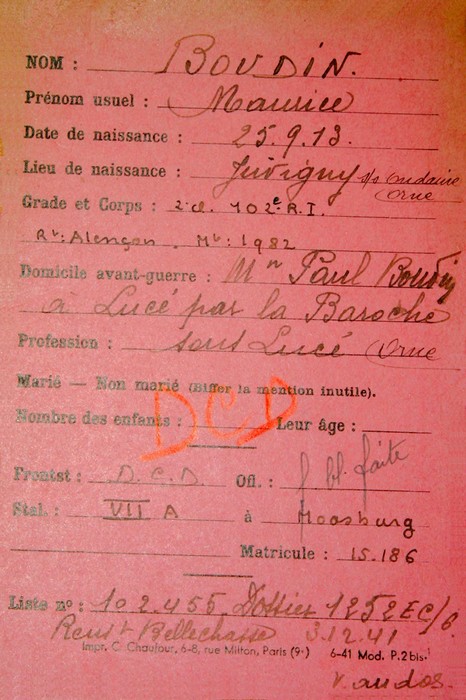 NOM : BOUDIN.
Prénom usuel : Maurice
Date de naissance : 25.9.13.
Lieu de naissance : Juvigny s/s Andaine
Orne
Grade et Corps : 2e cl. 102e R.I.
Rt: Alençon. Mle: 1982
Domicile avant-guerre : Mr Paul Boudin
à Lucé par la Baroche
Profession : sous Lucé (Orne
Marié — Non marié (Biffer la mention inutile).
DCD
Nombre des enfants : Leur âge :
Frontst : D.C.D Ofl. : f bl. faite
Stal. : VII A à Moosburg
Matricule : 15.186
Liste no : 102.455 Dossier 1252EC/6.
Renst Bellechasse 3.12.41
Impr. C. Chaufour, 6-8, rue Milton, Paris (9e) 6-41 Mod. P.2 bis.